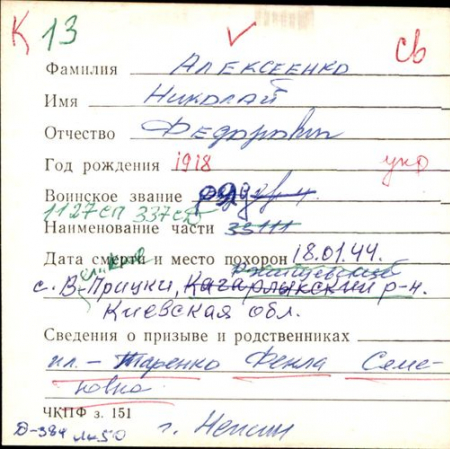 К 13 св
Фамилия Алексеенко
Имя Николай
Отчество Федорович
Год рождения 1918 укр
Воинское звание рядов-й
1127 СП 337 СД
Наименование части 35111
Дата смерти и место похорон 18.01.44.
Ржищевский
с. В-Прицки, Кагарлыкский р-н.
Киевская обл.
Сведения о призыве и родственниках
пл. - Таренко Фекла Семе-
новна
ЧКПФ з. 151
Д-384 г. Нежин